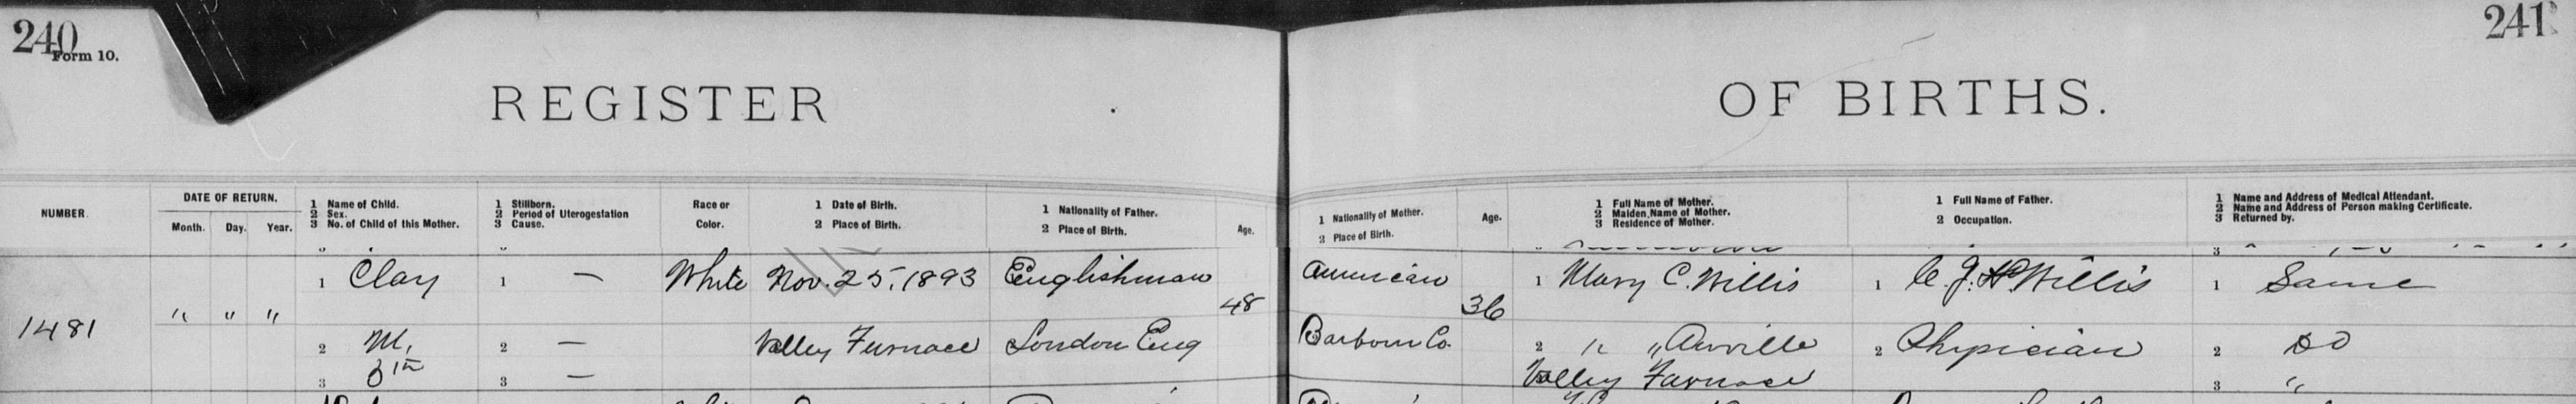 240
Form 10.
241
REGISTER OF BIRTHS.
NUMBER.
DATE OF RETURN.
Month. Day. Year.
1 Name of Child.
2 Sex.
3 No. of Child of this Mother.
1 Stillborn.
2 Period of Uterogestation
3 Cause.
Race or
Color.
1 Date of Birth.
2 Place of Birth.
1 Nationality of Father.
2 Place of Birth.
Age.
1 Nationality of Mother.
2 Place of Birth.
Age.
1 Full Name of Mother.
2 Maiden Name of Mother.
3 Residence of Mother.
1 Full Name of Father.
2 Occupation.
1 Name and Address of Medical Attendant.
2 Name and Address of Person making Certificate.
3 Returned by.
1481
" " "
1 Clay
2 M.
3 8th
1 —
2 —
3 —
White
Nov. 25, 1893
Valley Furnace
Englishman
London Eng
48
American
Barbour Co.
36
1 Mary C. Willis
2 " " Anville
Valley Furnace
1 C. J. H. Willis
2 Physician
1 Same
2 DO
3 "